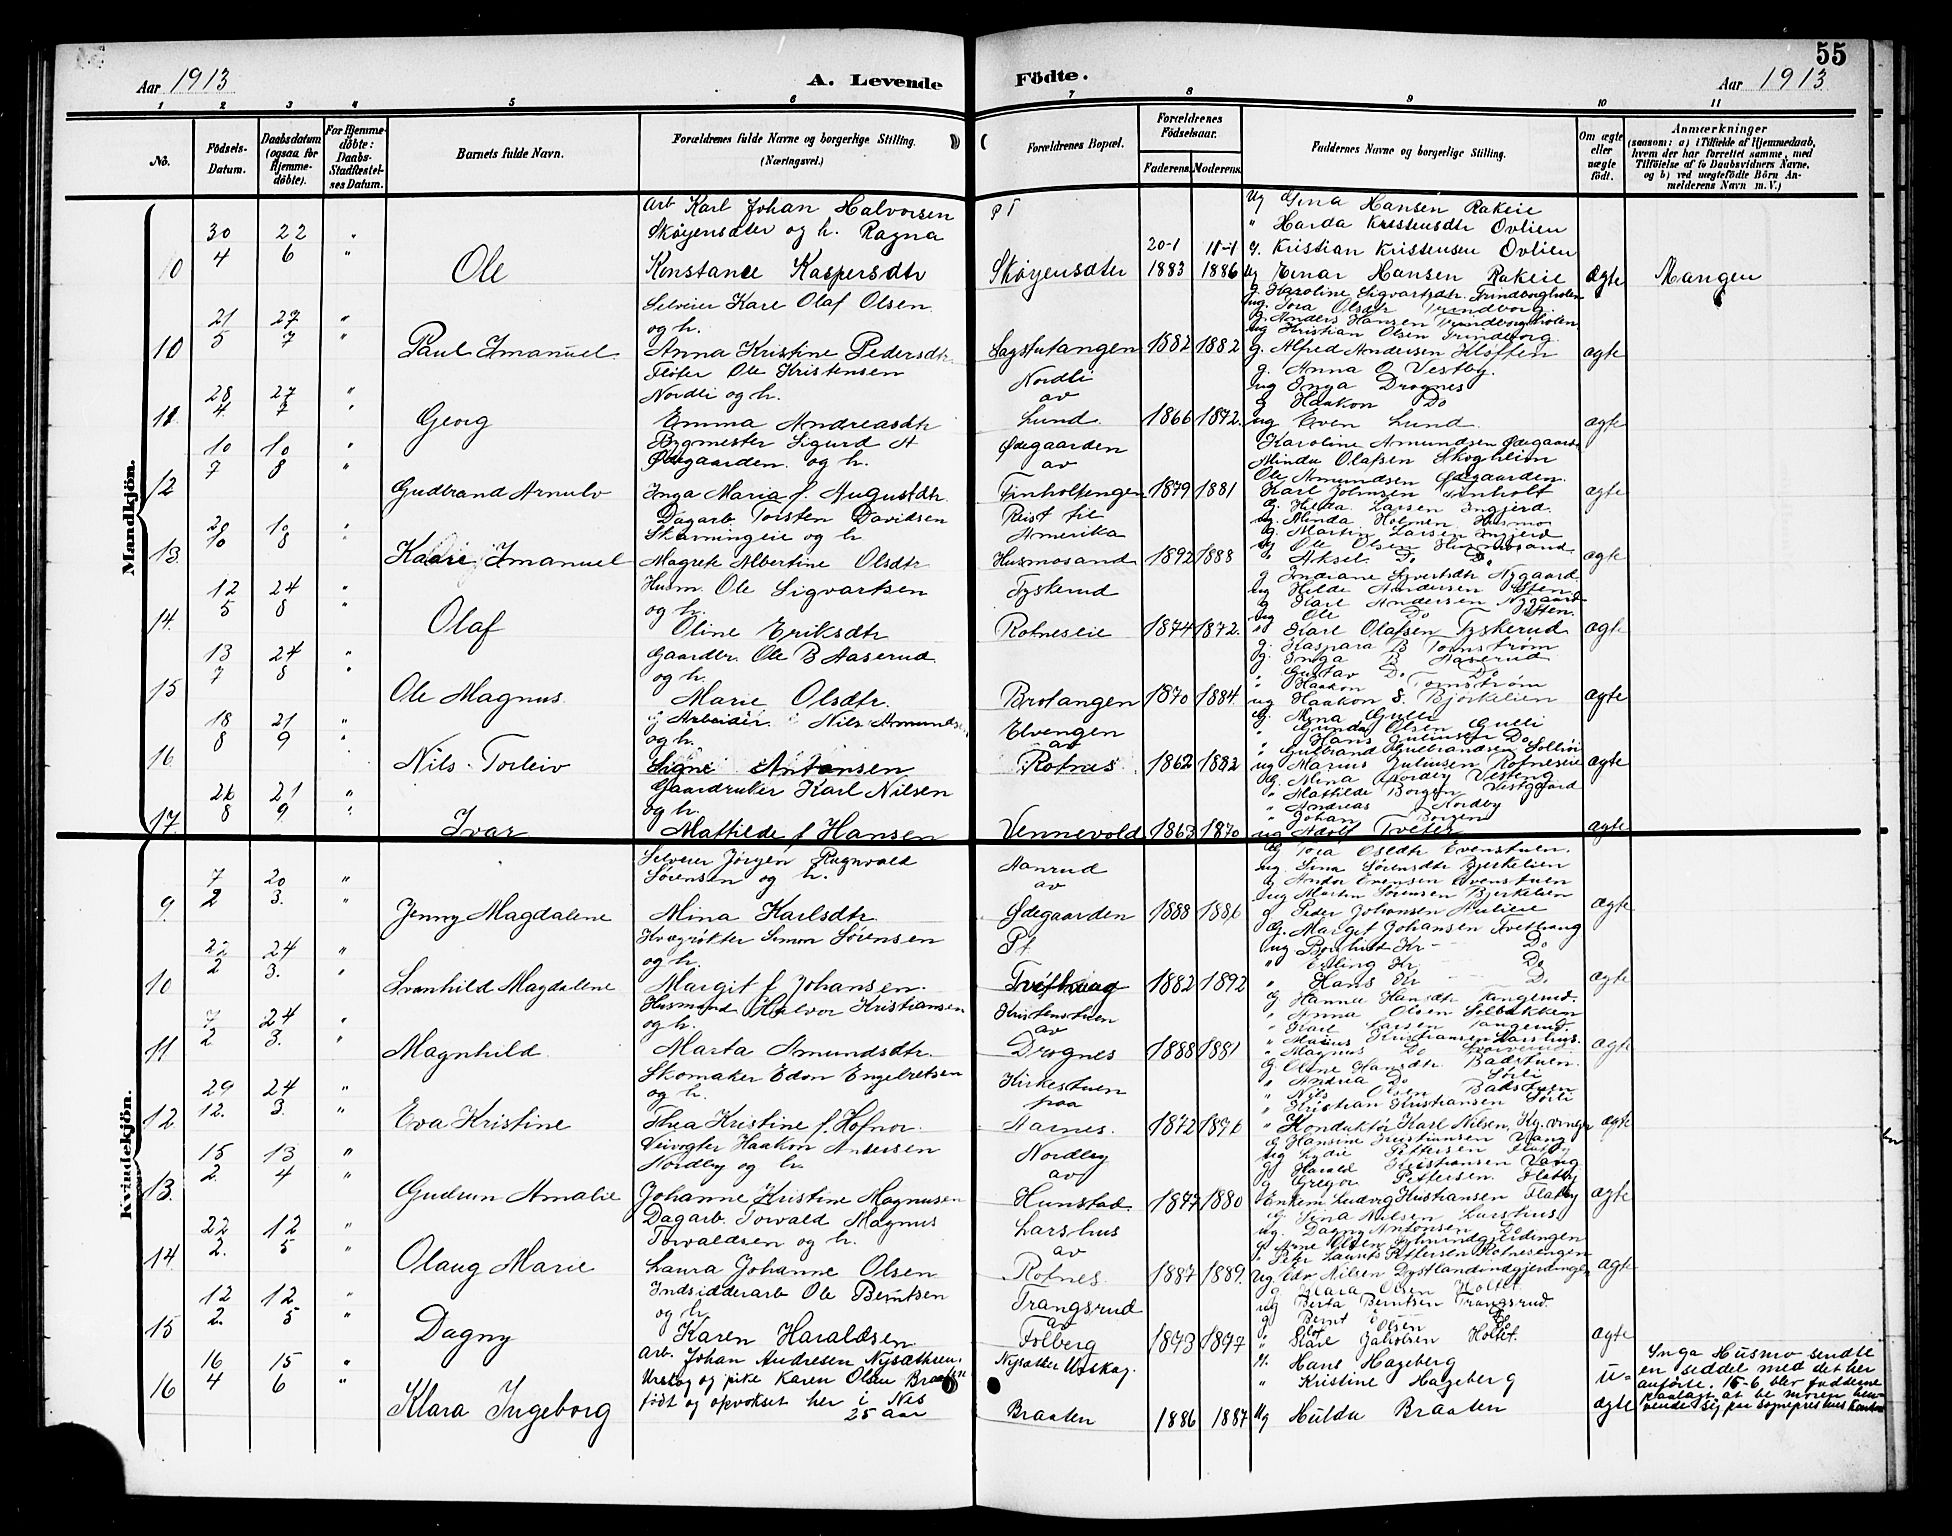 55
Aar 1913
A. Levende
Födte.
Aar 1913
1 2 3 4 5 6 7 8 9 10 11
No.
Födsels-Datum.
Daabsdatum (ogsaa for Hjemme-döbte).
For Hjemme-döbte: Daabs-Stadfæstel-ses Datum.
Barnets fulde Navn.
Forældrenes fulde Navne og borgerlige Stilling. (Næringsvei.)
Forældrenes Bopæl.
Forældrenes Födselsaar.
Faderens.
Moderens.
Faddernes Navne og borgerlige Stilling.
Om ægte eller uægte födt.
Anmærkninger (saasom: a) i Tilfælde af Hjemmedaab, hvem der har forrettet samme, med Tilföielse af to Daabsvidners Navne, og b) ved uægtefödte Börn An-melderens Navn m. V.)
Mandkjön.
10 30/4 22/6 " Ole
Arb Karl Johan Halvorsen
Skøyensæter og h. Ragna
Konstance Kaspersdtr
PT
Skøyensæter
20-1 1883 11-1 1886
Ug Gina Hansen Rakeie
" Harda Kristensdtr Ovlien
g. Kristian Kristensen Ovlien
Ug Einar Hansen Rakeie
Ægte
Mangen
10 21/5 27/7 " Paul Imanuel
Selveier Kare Olaf Olsen
og h.
Anna Kristine Pedersdtr
Sagstutangen 1882 1882
g. Karoline Sigvartsdtr. Trindborgholen
ug. Tora Olsdtr Trindborg.
g. Anders Hansen Trindborgholen
ug Kristian Olsen Trindborg
g. Alfred Andersen Kløften
ægte
11 28/4 27/7 " Georg
Fløter Ole Kristensen
Nordli og h.
Emma Andreasdtr
Nordli
av
Lund 1866 1872.
g. Anna O Vestby.
ug Inga Drognes
g Haakon Do
ug Even Lund
ægte
12 10/7 10/8 " Gudbrand Arnulv
Bygmester Sigurd A
Ødegaarden og h.
Inga Maria f. Augustdtr.
Ødegaarden
av
Finholtengen 1879 1881
Karoline Amundsen Ødegaard
Minda Olafsen Skogheim
Ole Amundsen Ødegaarden
Karl Johnsen Finholt
ægte
13. 20/10 10/8 " Kaare Imanuel
Dagarb. Torsten Davidsen
Skavningeie og h
Magrete Albertine Olsdtr
Reist til
Amerika
Husmosand 1892 1888
g. Hilda Larsen Ingjerd.
ug. Minda Holmen Husmo
g. Martin Larsen Ingjerd
ug Ole Olsen Husmosand
" Aksel Do Do
ægte
14. 12/5 24/8 " Olaf
Husm. Ole Sigvartsen
og h.
Oline Eriksdtr
Tyskerud
Rotneseie 1874 1872.
g Indiane Syvertsdtr Nygaard
ug Hilde Andersen Esten
g Karl Andersen Nygaard
ug Ole Do Esten
" Karl Olafsen Tyskerud
ægte
15 13/7 24/8 " Ole Magnus
Gaardbr. Ole B Aaserud
og h.
Marie Olsdtr.
Brotangen 1870 1884.
g. Kaspara B Tomstrøm
g. Inga B Aaserud
" Gustav Do Do
" Haakon Tomstrøm
ug Haakon S. Bjørkelien
ægte
16 18/8 21/9 " Nils Torleiv
g Arbeider Nils Amunds
og h.
Signe Antonsen
Elvengen
av
Rotnes 1862 1882
g. Mina Gulli
" Gunda Olsen Gulli
" Hans Juliusen Do
" Gulbrand Gulbrandsen Sollien
ug Marius Juliusen Rotneseie
ægte
17. 26/8 21/9 " Ivar
Gaardbruker Karl Nilsen
og h.
Mathilde f Hansen
Vennevold 1863 1870
g. Mina Nordby Vesteng
" Mathilde Borgen Vestgaard
" Andreas Nordby
" Johan Borgen
ug Adolf Tveter
ægte
Kvindekjön.
9 7/2 20/3. " Jenny Magdalene
Selveier Jørgen Ragnvald
Sørensen og h.
Mina Karlsdtr
Aanrud
av
Ødegaarden 1888 1886
g Tora Olsdtr Evenstuen.
ug. Sina Sørensdtr Bjerkelien
g Andor Evensen Evenstuen
ug Martin Sørensen Bjerkelien
g Peder Johansen Mulieie
ægte
10 22/2 24/3. " Svanhild Magdalene
Kvægrøkter Simon Sørensen
og h.
Margit f Johansen.
Pt
Tvethaug 1882 1892
g. Margit Johansen Tvethaug
ug Borghild Kr Do
" Erling Kr Do
" Hans Kr Do
ægte
11 7/2 24/3. " Magnhild
Husmand Halvor Kristiansen
og h.
Marta Amundsdtr.
Kristenstuen
av
Drognes 1888 1881
g Hanna Hansdtr Tangerud.
" Anna Olsen Solbakken
" Karl Larsen Tangerud
" Marius Kristiansen Larshus.
" Magnus Do
ægte
12 29/12. 24/3. " Eva Kristine
Skomaker Edon Engelretsen
og h.
Thea Kristine f. Hofnor
Kirkestuen
paa
Aarnes. 1872 1876
g Oline Hansdtr. Badstuen
" Andrea Do Sørli
" Nils Olsen Badstuen
" Kristian Kristiansen Sørli
" Konduktør Karl Nilsen, Kg.vinger
ægte
13. 15/2. 13/4 " Gudrun Amalie
Veivogter Haakon Antersen
Nordby og h.
Johanne Kristine Magnusen
Nordby
av
Hunstad 1877 1880
g Hansine Kristiansen Vang
ug Lydie Pettersen Flatby
g Harald Kristiansen Vang
g Gregor Pettersen Flatby
Enkem. Ludvig Kristiansen Flatby
ægte
14 22/2. 12/5 " Olaug Marie
Dagarb. Torvald Magnus
Torvaldsen og h.
Laura Johanne Olsen
Larshus
av
Rotnes. 1887 1889.
g Sina Nilsen Larshus
ug. Dagny Antonsen Do
g Arne Olsen
g. Peter Laurits Pettersen Rotnesengen
ug Edv. Nilsen Dystlandindgjerdingen
ægte
15 12/2. 12/5 " Dagny
Indsidderarb Ole Berntsen
og h.
Karen Haraldsen
Trangsrud
av
Folberg 1893 1897
g Klara Olsen Holtet
ug Berta Berntsen Trangsrud.
g Bernt Olsen Do
" Karl Jakobsen Holtet.
ægte
16 16/4 15/6 " Klara Ingeborg
Arb. Johan Andresen Nysæthren,
Urskog og pike Karen Olsen Braaten
født og opvokset her i Nes
25 aar
Nysæter Urskog.
Braaten 1886 1887
g. Hans Hageberg
" Kristine Hageberg
Ug Hulda Braaten
u-
ægte
Inga Husmo sendte
en seddel med det her
anførte. 15-6 blev fadderne
paalagt at be moren hen-
vende sig paa sogneprestens kontor